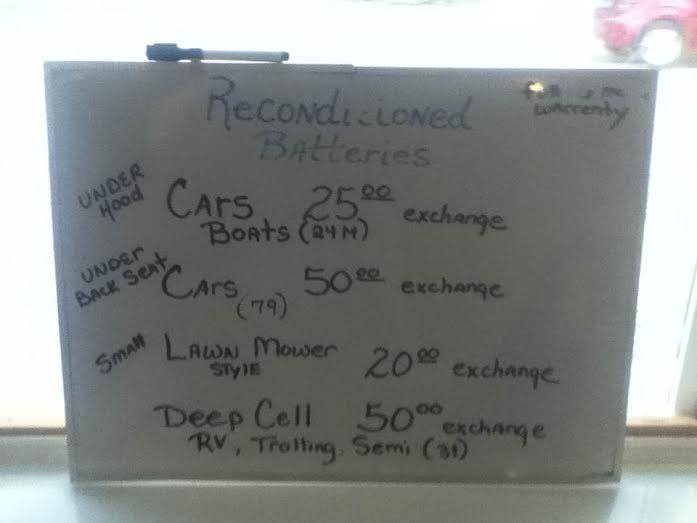 Recondicioned
Batteries
warrenty
UNDER
Hood
Cars 25.00 exchange
Boats (24M)
UNDER
Back Seat
Cars 50.00 exchange
(79)
Small
Lawn Mower 20.00 exchange
STYLE
Deep Cell 50.00 exchange
RV, Trolling, Semi (31)